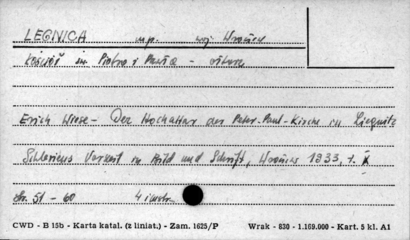 LEGNICA mp. woj. Wrocław
kościół św Piotra i Pawła - ołtarz
Erich Wiese - Der Hochaltar der Peter-Paul-Kirche in Liegnitz
Schlesiens Vorzeit in Bild und Schrift, Wrocław 1933, t. X
str. 51 - 60 4 ilustr.
CWD - B 15b - Karta katal. (z liniat.) - Zam. 1625/P Wrak - 830 - 1.169.000 - Kart. 5 kl. A1